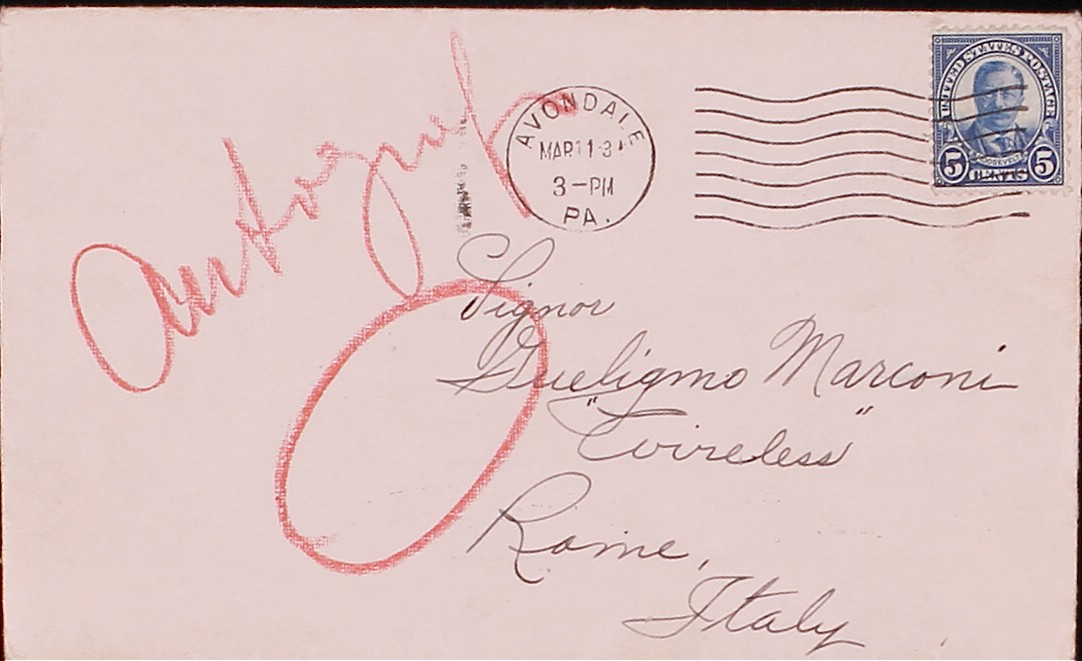 AVONDALE
MAR 11
3-PM
PA.
UNITED STATES POSTAGE
ROOSEVELT
5 5
CENTS
Signor
Gueligmo Marconi
"Wireless"
Rome,
Italy